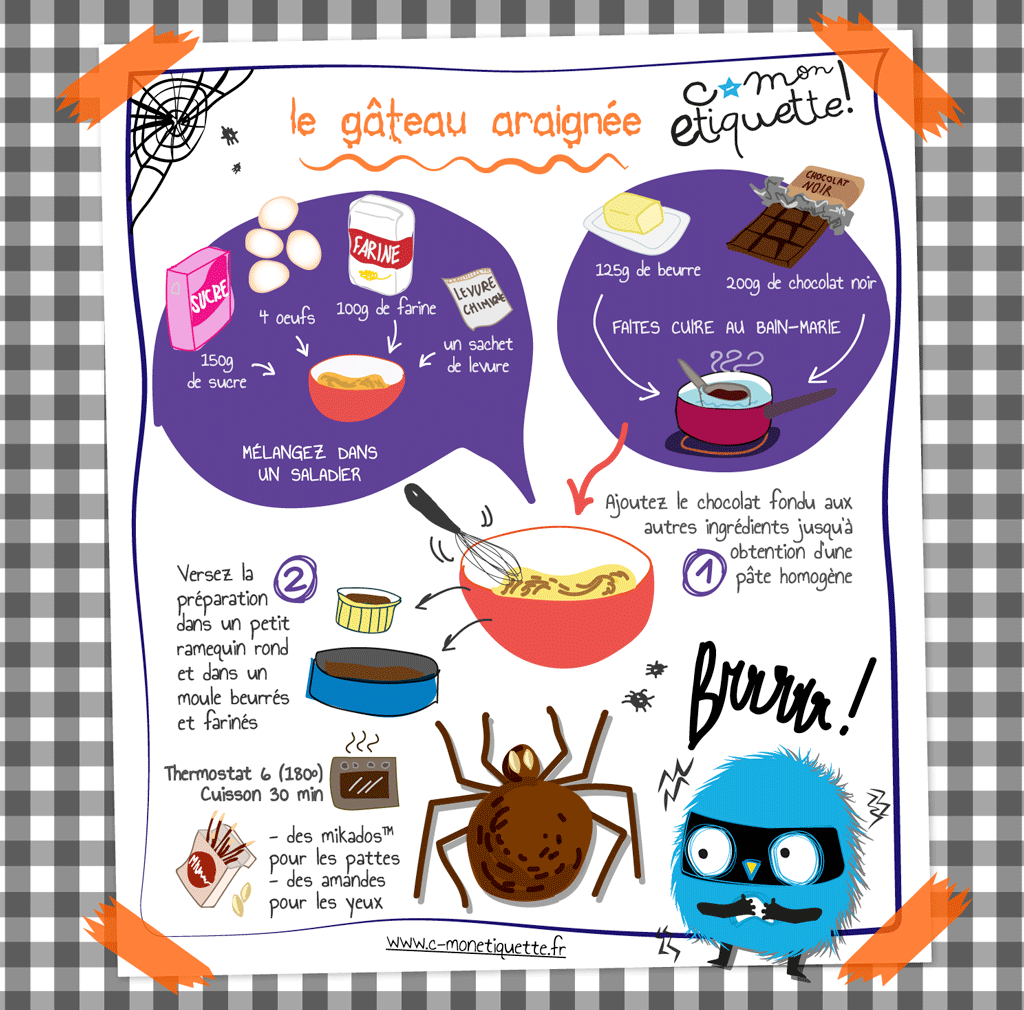 le gâteau araignée
c mon
etiquette!
SUCRE
FARINE
LEVURE
CHIMIQUE
4 oeufs
100g de farine
150g
de sucre
un sachet
de levure
MÉLANGEZ DANS
UN SALADIER
CHOCOLAT
NOIR
125g de beurre
200g de chocolat noir
FAITES CUIRE AU BAIN-MARIE
Ajoutez le chocolat fondu aux
autres ingrédients jusqu'à
obtention d'une
pâte homogène
1
2
Versez la
préparation
dans un petit
ramequin rond
et dans un
moule beurrés
et farinés
Brrrrr!
Thermostat 6 (180°)
Cuisson 30 min
- des mikados™
pour les pattes
- des amandes
pour les yeux
www.c-monetiquette.fr